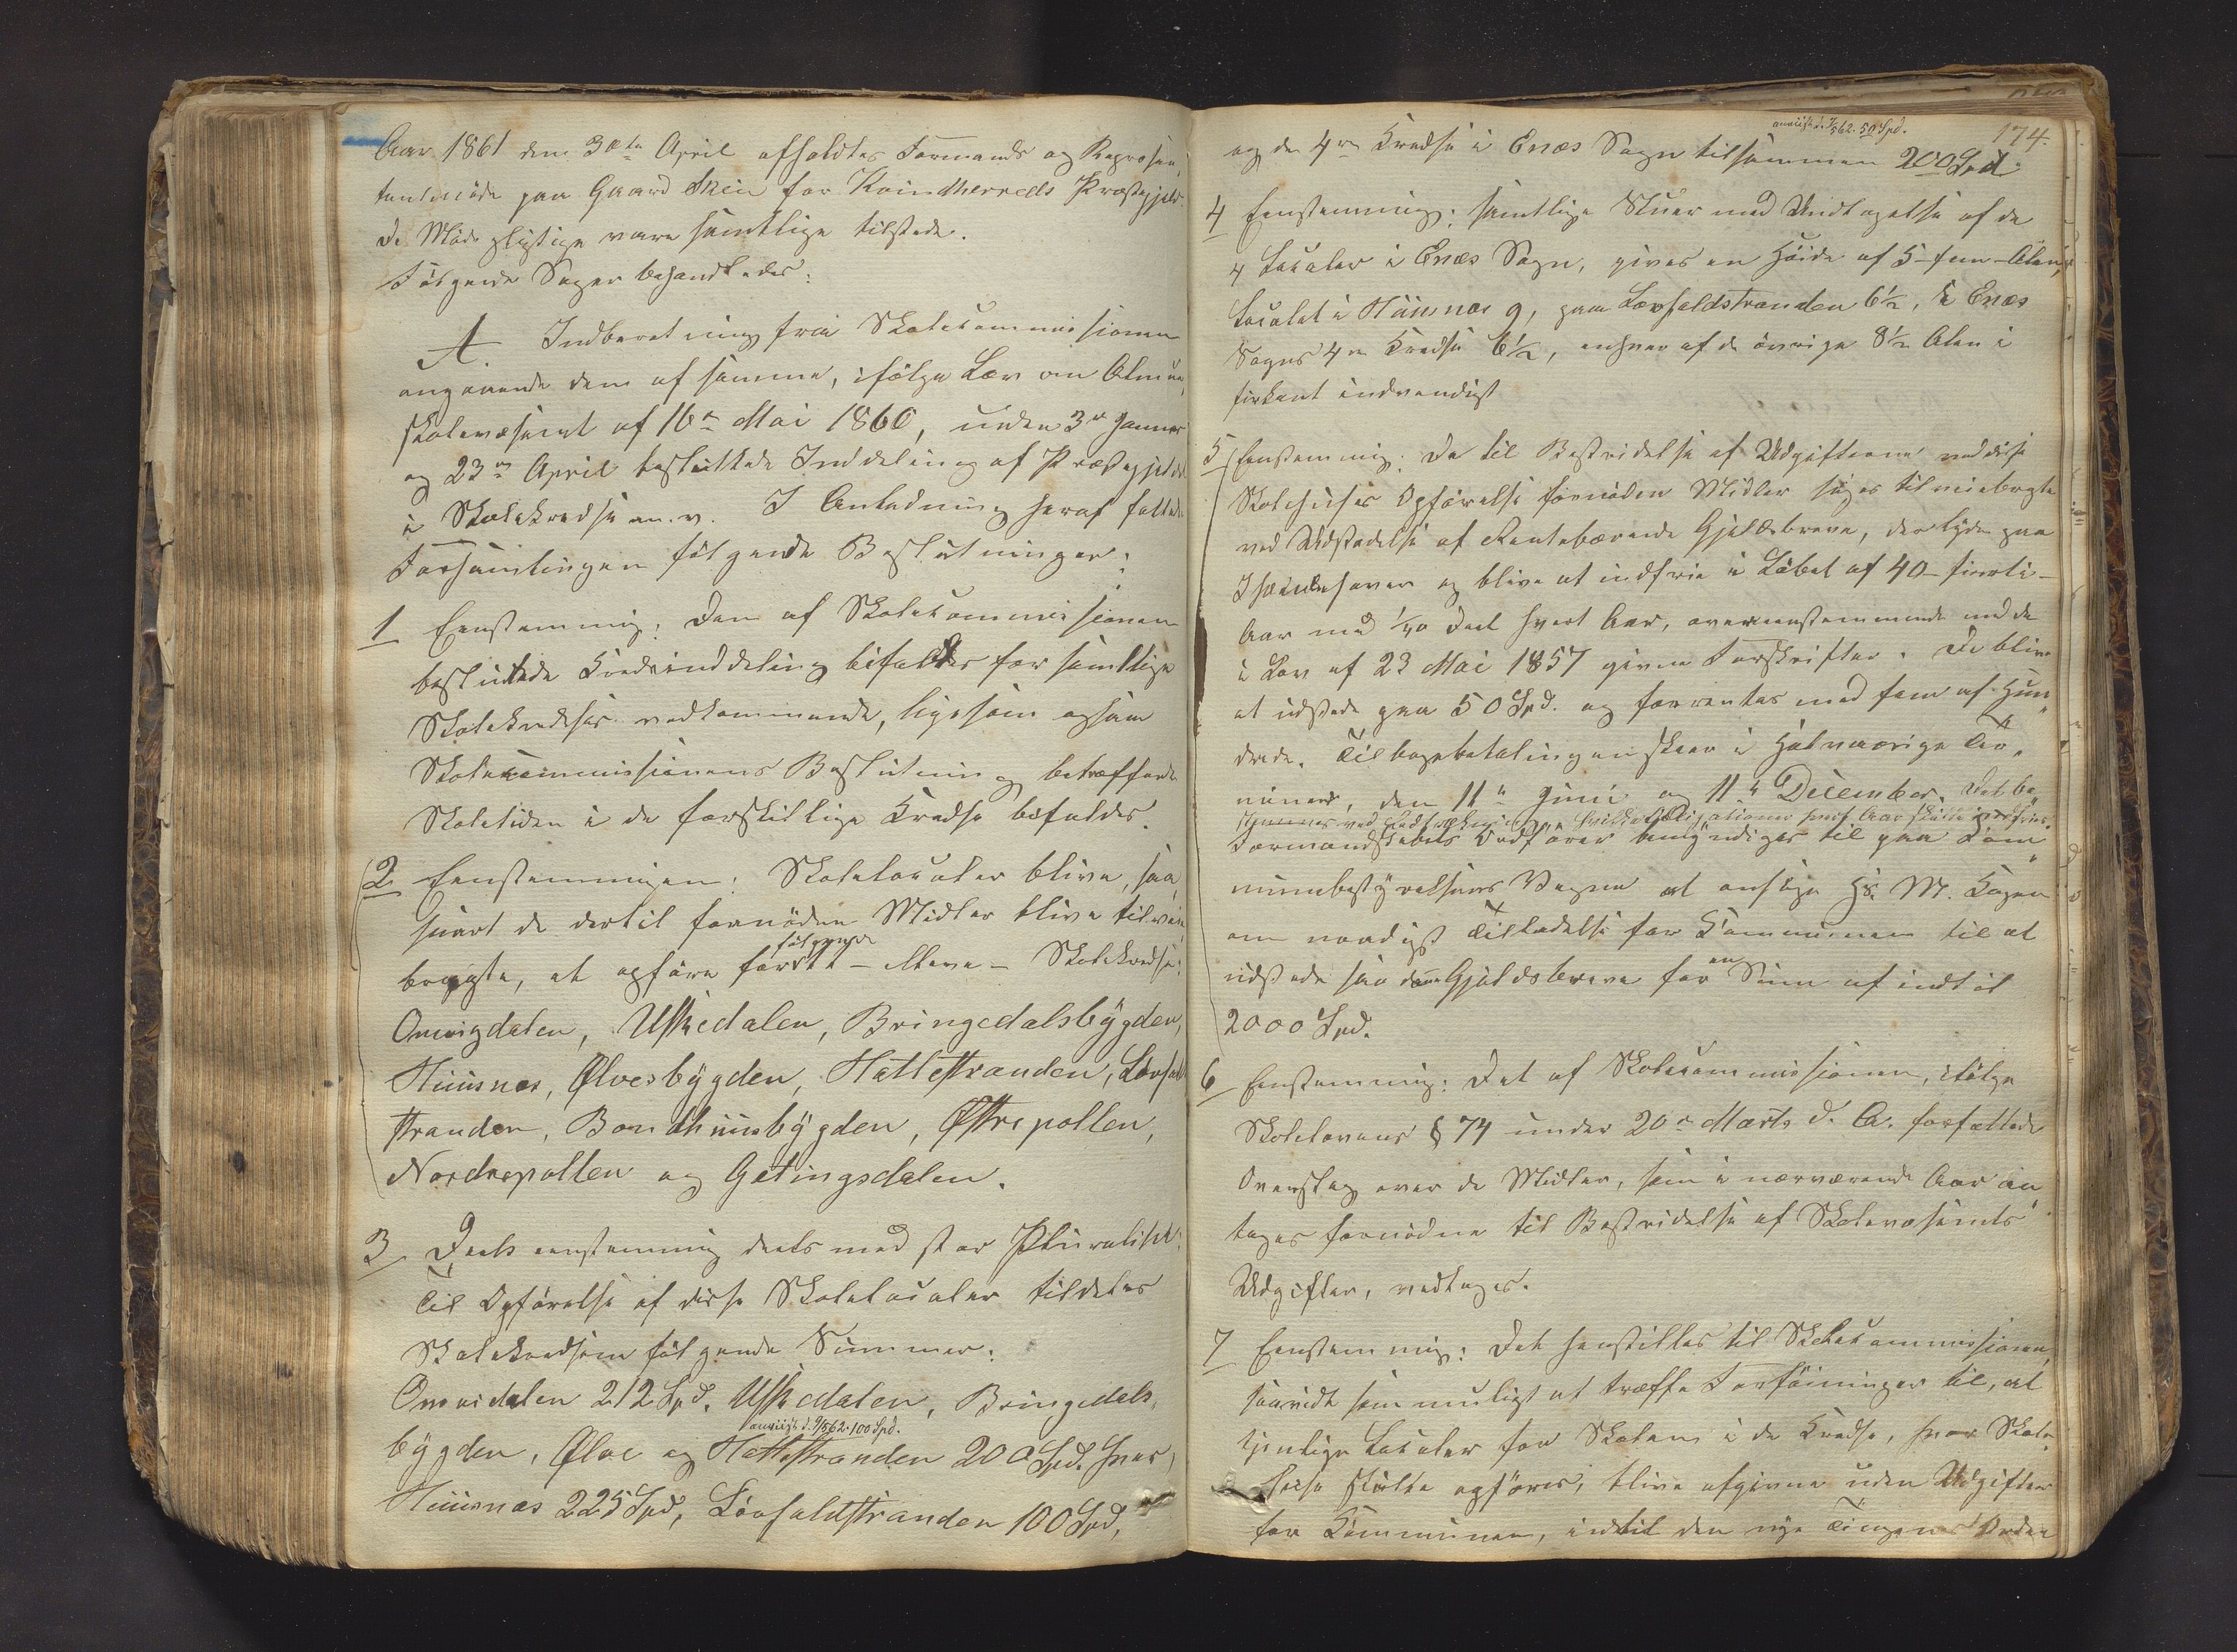 Aar 1861 den 30te April afholdtes Formands og Repræsen,
tantmøde paa Gaard Skeie for Kvindherreds Præstegjeld.
De Mødepligtige vare samtlige tilstede.
Følgende Sager behandledes:
A. Indberetning fra Skolecommissionen
angaaende den af samme, ifølge Lov om Almue,
skolevæsenet af 16de Mai 1860, under 3de Januar
og 23de April besluttede Inddeling af Præstegjeldet
i Skolekredse m. v. I Anledning heraf fattede
Forsamlingen følgende Beslutninger:
1 Eenstemmig: Den af Skolecommissionen
besluttede Kredsinddeling bifaldes for samtlige
Skolekredses vedkommende, ligesom ogsaa
Skolecommissionens Beslutning betræffende
Skoletiden i de forskjellige Kredse bifaldes.
2 Eenstemmigen: Skolelocaler blive, saa,
snart de dertil fornødne Midler blive tilveie,
bragte, at opføre først følgende - elleve - Skolekredse:
Omvigdalen, Uskedalen, Bringedalsbygden,
Huusnæs, Ølvesbygden, Hattestranden, Løvfald
stranden, Bondhuusbygden, Østrepollen,
Nordrepollen og Gjetingsdalen.
3 Deels eenstemmig deels med stor Pluralitet:
Til Opførelse af disse Skolelocaler tildeles
Skolekredsene følgende Summer:
Omvigdalen 212 Spd. Uskedalen, Bringedals,
anviist d. 9/5 62. 100 Spd.
bygden, Ølve og Hattestranden 200 Spd. hver,
Huusnæs 225 Spd, Løvfaldstranden 100 Spd,
174.
anviist d. 9/5 62. 50 Spd.
og de 4re Kredse i Enæs Sogn tilsammen 200 Spd.
4 Eenstemmig: samtlige Stuer med Undtagelse af de
4 Localer i Enæs Sogn, gives en Høide af 5 - fem - Alen,
Localet i Huusnæs 9, paa Løvfaldstranden 6½, i Enæs
Sogns 4re Kredse 6½, enhver af de øvrige 8½ Alen i
firkant indvendigt
5 Eenstemmig: De til Bestridelse af Udgifterne ved disse
Skolehuses Opførelse fornødne Midler søges tilveiebragte
ved Udstedelse af Rentebærende Gjeldsbreve, der lyde paa
Ihændehaver og blive at indfrie i Løbet af 40 - firti -
Aar med 1/40 Deel hvert Aar, overeensstemmende med de
i Lov af 23 Mai 1857 givne Forskrifter. De blive
at udstede paa 50 Spd. og forrentes med fem af Hun,
drede. Tilbagebetalingen skeer i halvaarige Ter,
miner, den 11te Juni og 11te December. Det be,
stemmes ved Lodtrækning, hvilke Obligationer hvert Aar skulle indfries.
Formandskabets Ordfører bemyndiges til paa Com
munebestyrelsens Vegne at ansøge Hs. M. Kongen
om naadigst Tilladelse for Communen til at
udstede saadanne Gjeldsbreve for en Sum af indtil
2000 Spd.
6 Eenstemmig: Det af Skolecommissionen, ifølge
Skolelovens § 74 under 20de Marts d. A. forfattede
Overslag over de Midler, som i nærværende Aar an
tages fornødne til Bestridelse af Skolevæsenets
Udgifter, vedtages.
7 Eenstemmig: Det henstilles til Skolecommissionen,
saavidt som muligt at træffe Forføininger til, at
tjenlige Localer for Skolen i de Kredse, hvor Skole,
huse skulle opføres, blive afgivne uden Udgifter
for Communen, indtil den nye Tingenes Orden